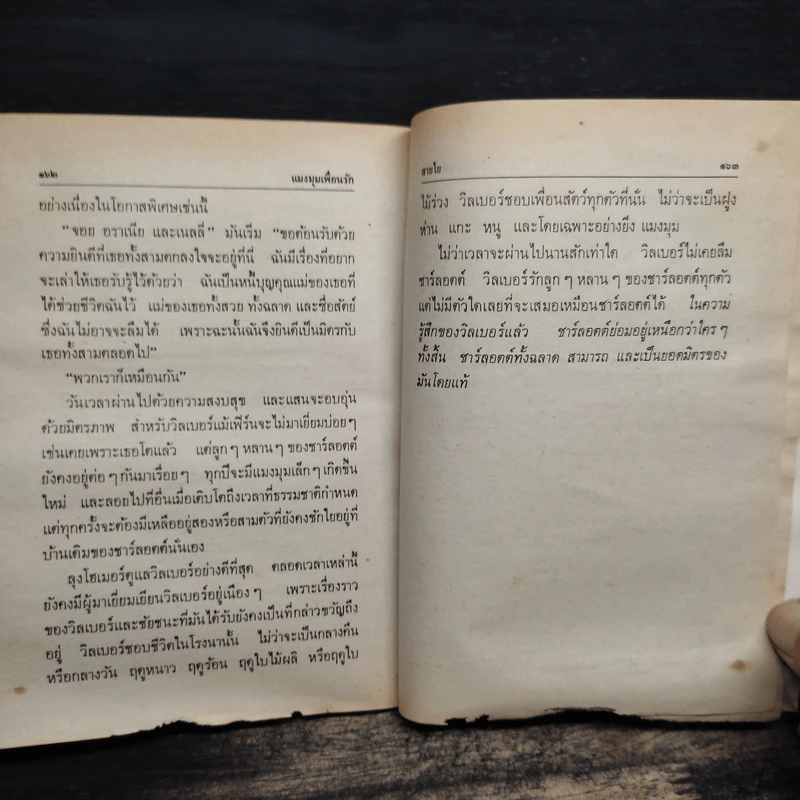 ๑๖๒
แมงมุมเพื่อนรัก
อย่างเนื่องในโอกาสพิเศษเช่นนี้
“จอย อราเนีย และเนลลี่” มันเริ่ม “ขอต้อนรับด้วย
ความยินดีที่เธอทั้งสามตกลงใจจะอยู่ที่นี่ ฉันมีเรื่องที่อยาก
จะเล่าให้เธอรับรู้ไว้ด้วยว่า ฉันเป็นหนี้บุญคุณแม่ของเธอที่
ได้ช่วยชีวิตฉันไว้ แม่ของเธอทั้งสวย ทั้งฉลาด และซื่อสัตย์
ซึ่งฉันไม่อาจจะลืมได้ เพราะฉะนั้นฉันจึงยินดีเป็นมิตรกับ
เธอทั้งสามตลอดไป”
“พวกเราก็เหมือนกัน”
วันเวลาผ่านไปด้วยความสงบสุข และแสนจะอบอุ่น
ด้วยมิตรภาพ สำหรับวิลเบอร์แม้เฟิร์นจะไม่มาเยี่ยมบ่อยๆ
เช่นเคยเพราะเธอโตแล้ว แต่ลูกๆ หลานๆ ของชาร์ลอตต์
ยังคงอยู่ต่อๆ กันมาเรื่อยๆ ทุกปีจะมีแมงมุมเล็กๆ เกิดขึ้น
ใหม่ และลอยไปที่อื่นเมื่อเติบโตถึงเวลาที่ธรรมชาติกำหนด
แต่ทุกครั้งจะต้องมีเหลืออยู่สองหรือสามตัวที่ยังคงชักใยอยู่ที่
บ้านเดิมของชาร์ลอตต์นั่นเอง
ลุงโฮเมอร์ดูแลวิลเบอร์อย่างดีที่สุด ตลอดเวลาเหล่านี้
ยังคงมีผู้มาเยี่ยมเยียนวิลเบอร์อยู่เนืองๆ เพราะเรื่องราว
ของวิลเบอร์และชัยชนะที่มันได้รับยังคงเป็นที่กล่าวขวัญถึง
อยู่ วิลเบอร์ชอบชีวิตในโรงนานั้น ไม่ว่าจะเป็นกลางคืน
หรือกลางวัน ฤดูหนาว ฤดูร้อน ฤดูใบไม้ผลิ หรือฤดูใบ
สายใย
๑๖๓
ไม้ร่วง วิลเบอร์ชอบเพื่อนสัตว์ทุกตัวที่นั่น ไม่ว่าจะเป็นฝูง
ห่าน แกะ หนู และโดยเฉพาะอย่างยิ่ง แมงมุม
ไม่ว่าเวลาจะผ่านไปนานสักเท่าใด วิลเบอร์ไม่เคยลืม
ชาร์ลอตต์ วิลเบอร์รักลูกๆ หลานๆ ของชาร์ลอตต์ทุกตัว
แต่ไม่มีตัวใดเลยที่จะเสมอเหมือนชาร์ลอตต์ได้ ในความ
รู้สึกของวิลเบอร์แล้ว ชาร์ลอตต์ย่อมอยู่เหนือกว่าใครๆ
ทั้งสิ้น ชาร์ลอตต์ทั้งฉลาด สามารถ และเป็นยอดมิตรของ
มันโดยแท้